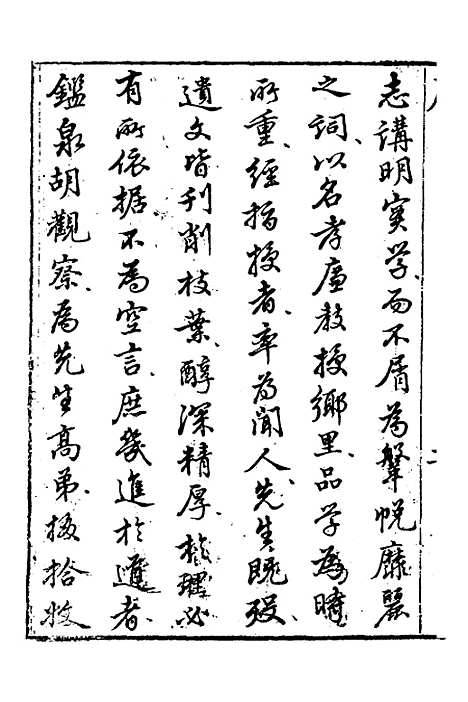 志講明實學而不屑為鞶帨靡麗
之詞以名孝廉教授鄉里品學為時
所重經指授者率為聞人先生既歿
遺文皆刊削枝葉醇深精厚於理必
有所依据不為空言庶幾進於道者
鑑泉胡觀察為先生高弟掇拾收